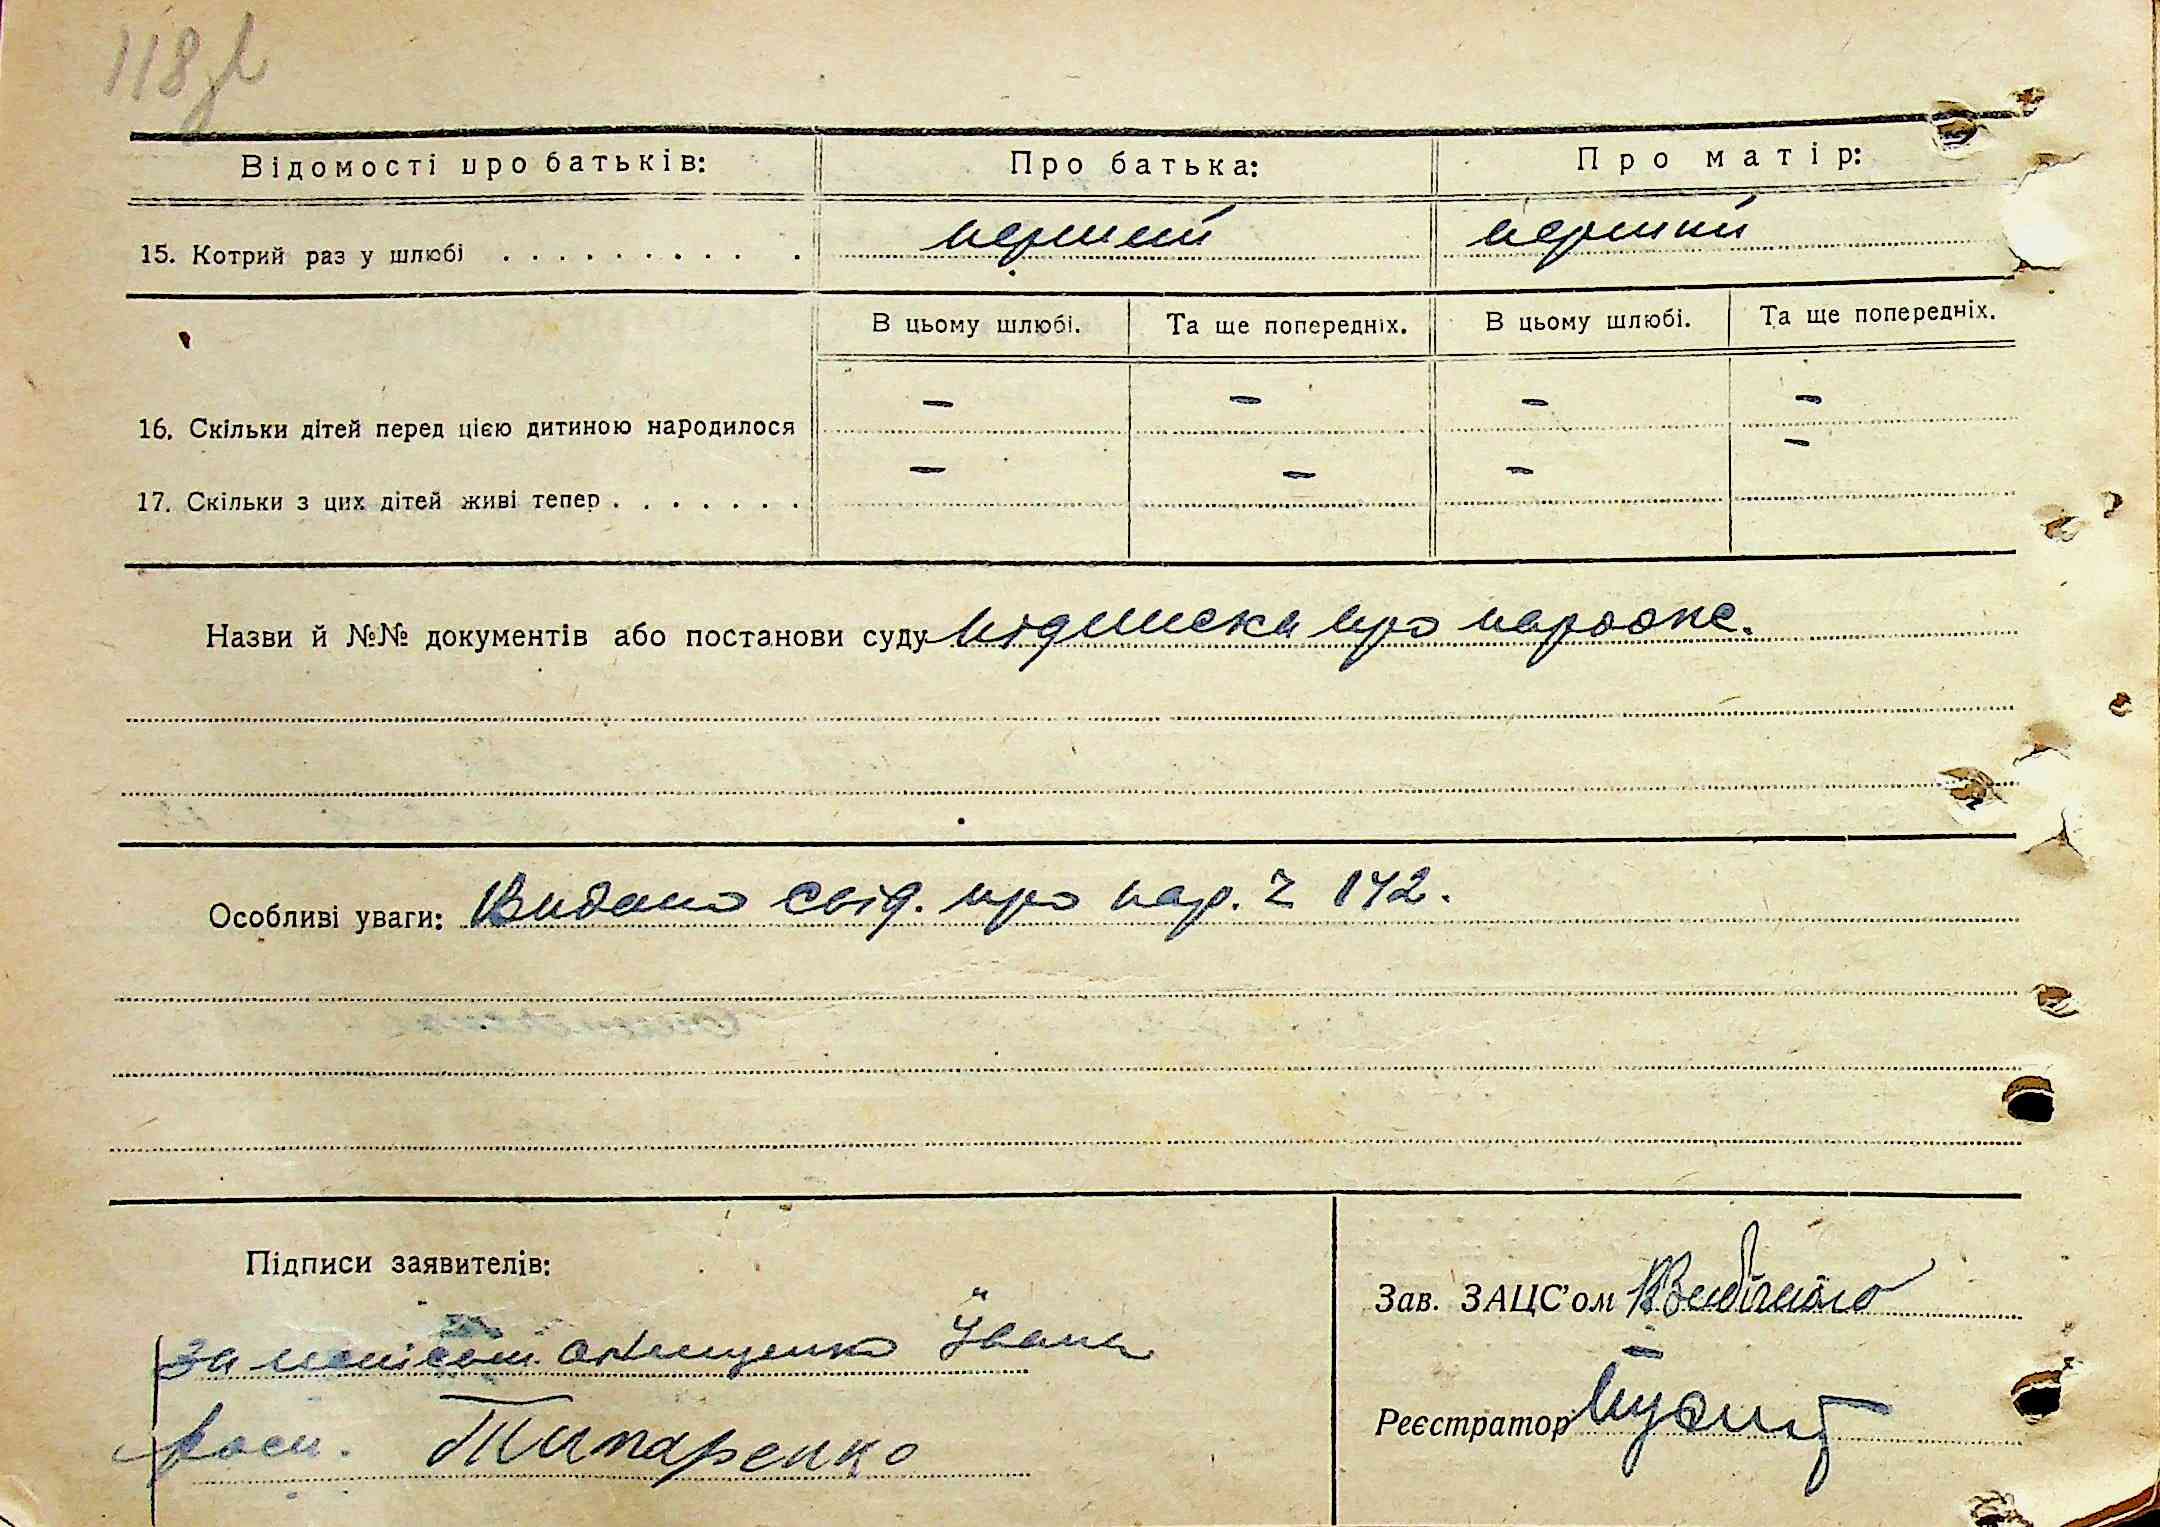 118
Відомості про батьків: Про батька: Про матір:
15. Котрий раз у шлюбі . . . . . . . . . . перший перший
В цьому шлюбі. Та ще попередніх. В цьому шлюбі. Та ще попередніх.
16. Скільки дітей перед цією дитиною народилося – – – –
17. Скільки з цих дітей живі тепер . . . . . . . – – – –
Назви й №№ документів або постанови суду підписка про
Особливі уваги: Видано свід. про нар. 142.
Підписи заявителів:
Зав. ЗАЦС’ом
Івана
Реєстратор